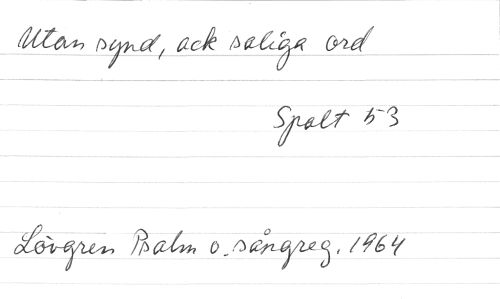 Utan synd, ack saliga ord
Spalt 53
Lövgren Psalm o. sångreg. 1964